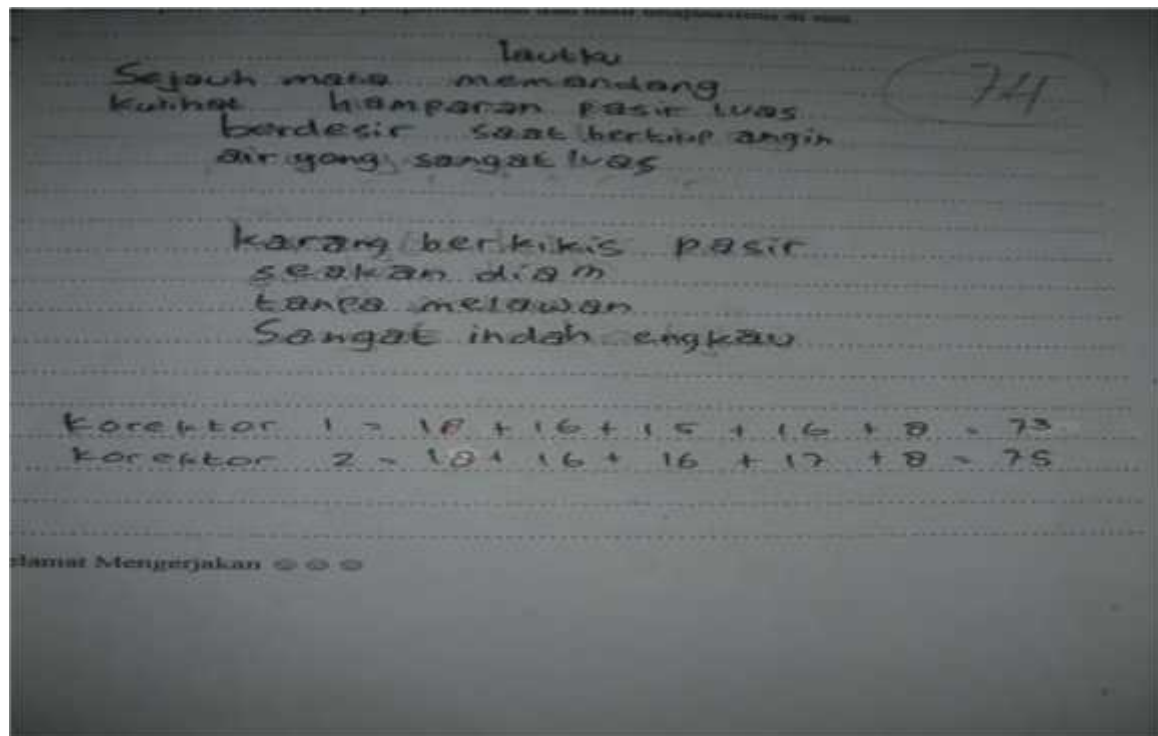 lautku
74
Sejauh mata memandang
Kulihat hamparan pasir luas
berdesir saat bertiup angin
air yang sangat luas
karang berkikis pasir
seakan diam
tanpa melawan
Sangat indah engkau
Korektor 1 = 18 + 16 + 15 + 16 + 8 = 73
Korektor 2 = 18 + 16 + 16 + 17 + 8 = 75
elamat Mengerjakan ☺ ☺ ☺